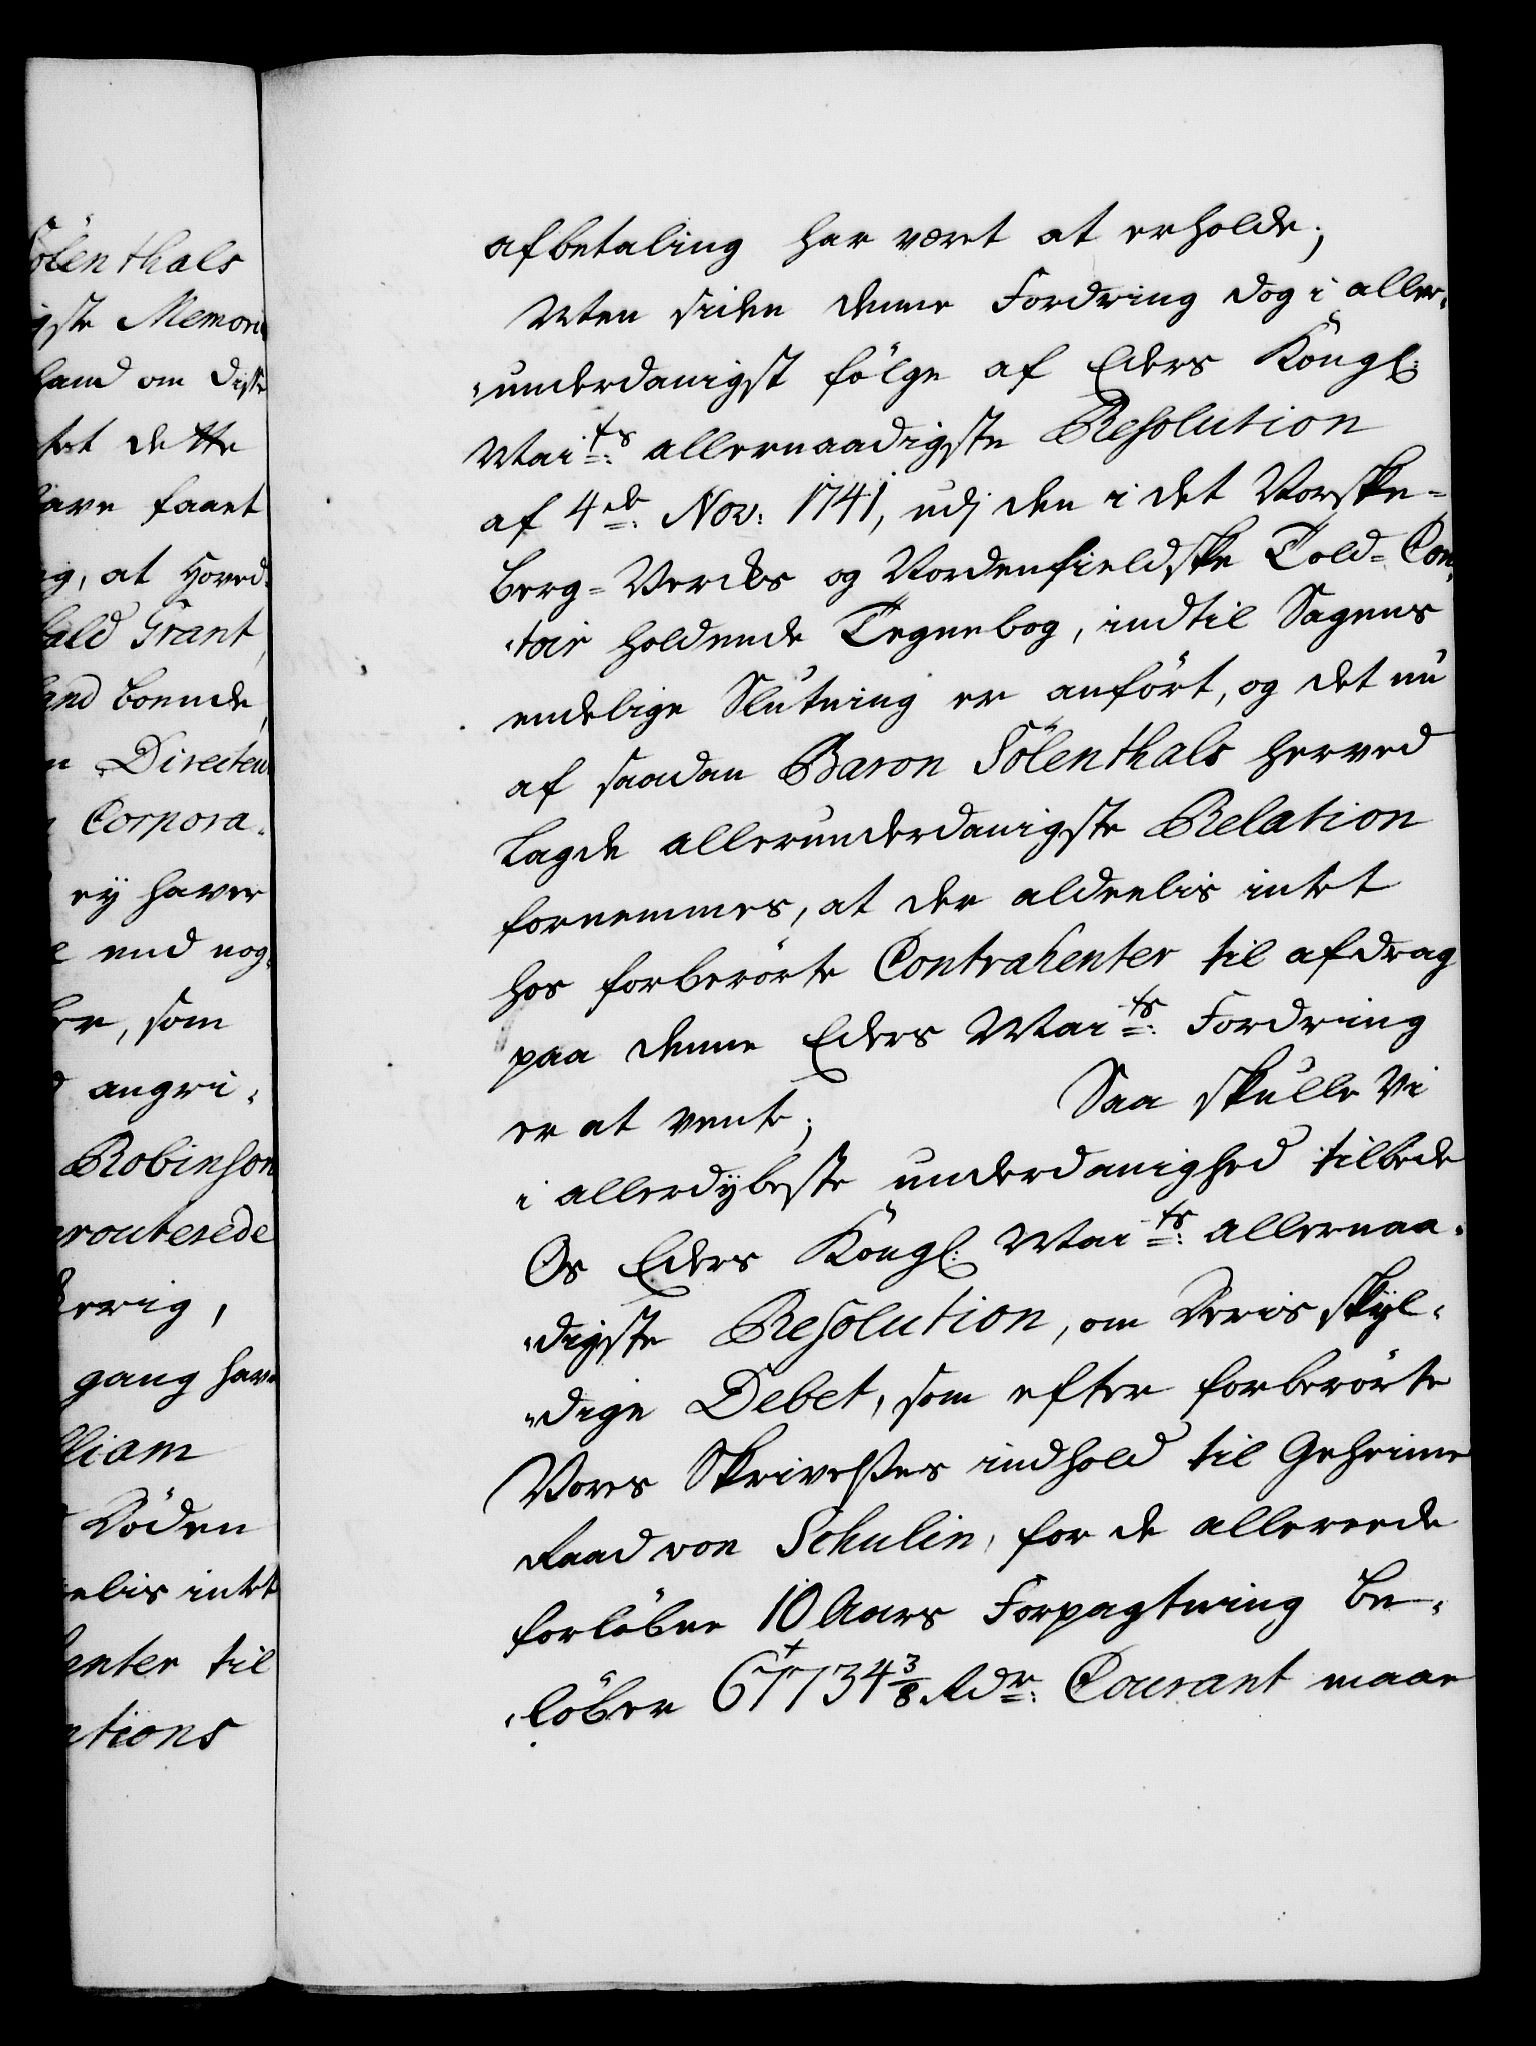 ölenthals
gste Memori
hand om disse
tet dette
have faaet
g, at Hoved
bald Grant,
and boende,
n Directeur
Corpora-
ey haver
e end nog
er, som
angri-
Robinson
erouterede
gang hav
lliam
Döden
elis intet
enter til
ations
afbetaling har været at erholde;
Men siden denne Fordring dog i aller-
underdanigst fölge af Eders Kongl:
Mai:ts allernaadigste Resolution
af 4de: Nov: 1741, udj den i det Norske-
berg-Verks og Nordenfieldske Told-Con-
toir holdende Tegnebog, indtil Sagens
endelige Slutning er anfört, og det nu
af saadan Baron Sölenthals herved
lagde allerunderdanigste Relation
fornemmes, at der aldeelis intet
hos forberörte Contrahenter til afdrag
paa denne Eders Mai:ts Fordring
er at vente; Saa skulle Vi
i allerdybeste underdanighed tilbede
Os Eders Kongl: Mai:ts allernaa-
digste Resolution, om deris skyl-
dige Debet, som efter forberörte
Vores Skrivelses indhold til Geheime
Raad von Schulin, for de allereede
forlöbne 10 Aars Forpagtning be-
löber 67734 3/8 Rdr: Courant maae